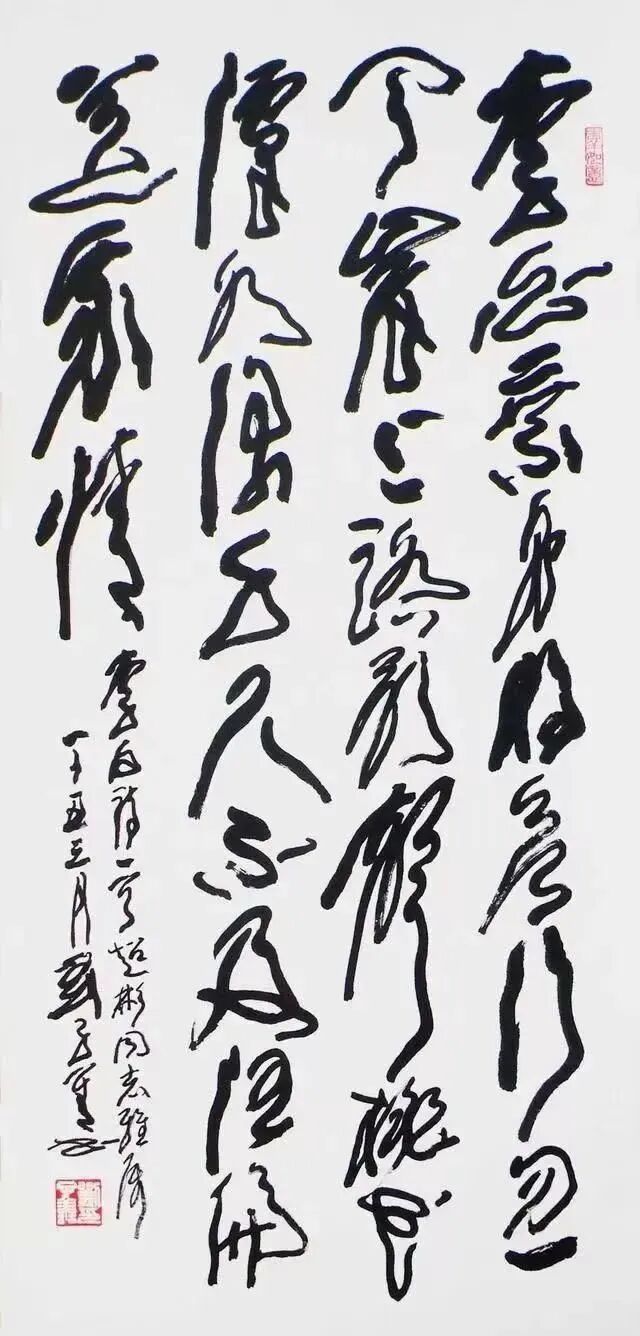 李白乘舟将欲行忽
闻岸上踏歌聲桃花
潭水深千尺不及汪倫
送我情
李白詩一首超彬同志雅属
丁丑三月